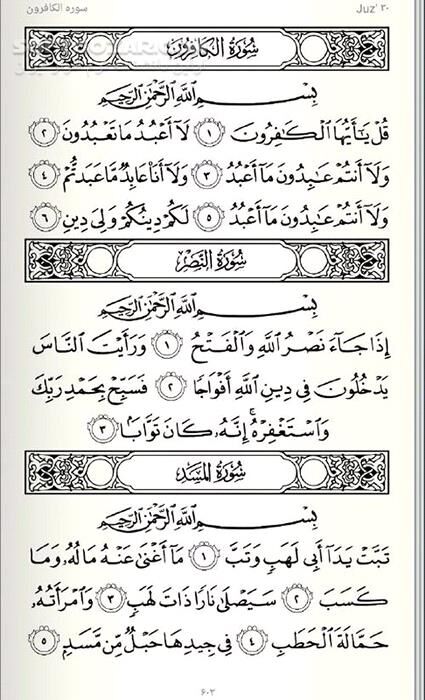 سوره الكافرون
Juz' ٣٠
سُورَةُ الكَافِرُونَ
بِسْمِ اللَّهِ الرَّحْمَٰنِ الرَّحِيمِ
قُلْ يَٰٓأَيُّهَا ٱلْكَٰفِرُونَ ١ لَآ أَعْبُدُ مَا تَعْبُدُونَ ٢
وَلَآ أَنتُمْ عَٰبِدُونَ مَآ أَعْبُدُ ٣ وَلَآ أَنَا۠ عَابِدٌ مَّا عَبَدتُّمْ ٤
وَلَآ أَنتُمْ عَٰبِدُونَ مَآ أَعْبُدُ ٥ لَكُمْ دِينُكُمْ وَلِيَ دِينِ ٦
سُورَةُ النَّصْرِ
بِسْمِ اللَّهِ الرَّحْمَٰنِ الرَّحِيمِ
إِذَا جَآءَ نَصْرُ ٱللَّهِ وَٱلْفَتْحُ ١ وَرَأَيْتَ ٱلنَّاسَ
يَدْخُلُونَ فِي دِينِ ٱللَّهِ أَفْوَاجًا ٢ فَسَبِّحْ بِحَمْدِ رَبِّكَ
وَٱسْتَغْفِرْهُ ۚ إِنَّهُۥ كَانَ تَوَّابًۢا ٣
سُورَةُ المَسَدِ
بِسْمِ اللَّهِ الرَّحْمَٰنِ الرَّحِيمِ
تَبَّتْ يَدَآ أَبِي لَهَبٍ وَتَبَّ ١ مَآ أَغْنَىٰ عَنْهُ مَالُهُۥ وَمَا
كَسَبَ ٢ سَيَصْلَىٰ نَارًا ذَاتَ لَهَبٍ ٣ وَٱمْرَأَتُهُۥ
حَمَّالَةَ ٱلْحَطَبِ ٤ فِي جِيدِهَا حَبْلٌ مِّن مَّسَدٍۭ ٥
٦٠٣